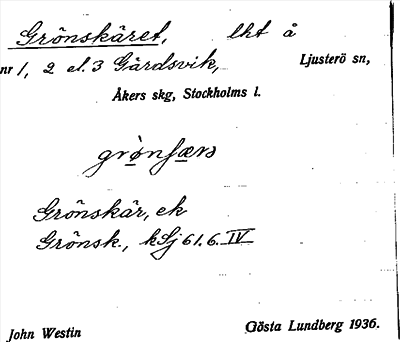 Grönskäret, lht å
nr 1, 2 el. 3 Gärdsvik, Ljusterö sn,
Åkers skg, Stockholms l.
Grönskär, ek
Grönsk., kSj 61.6. IV
John Westin Gösta Lundberg 1936.